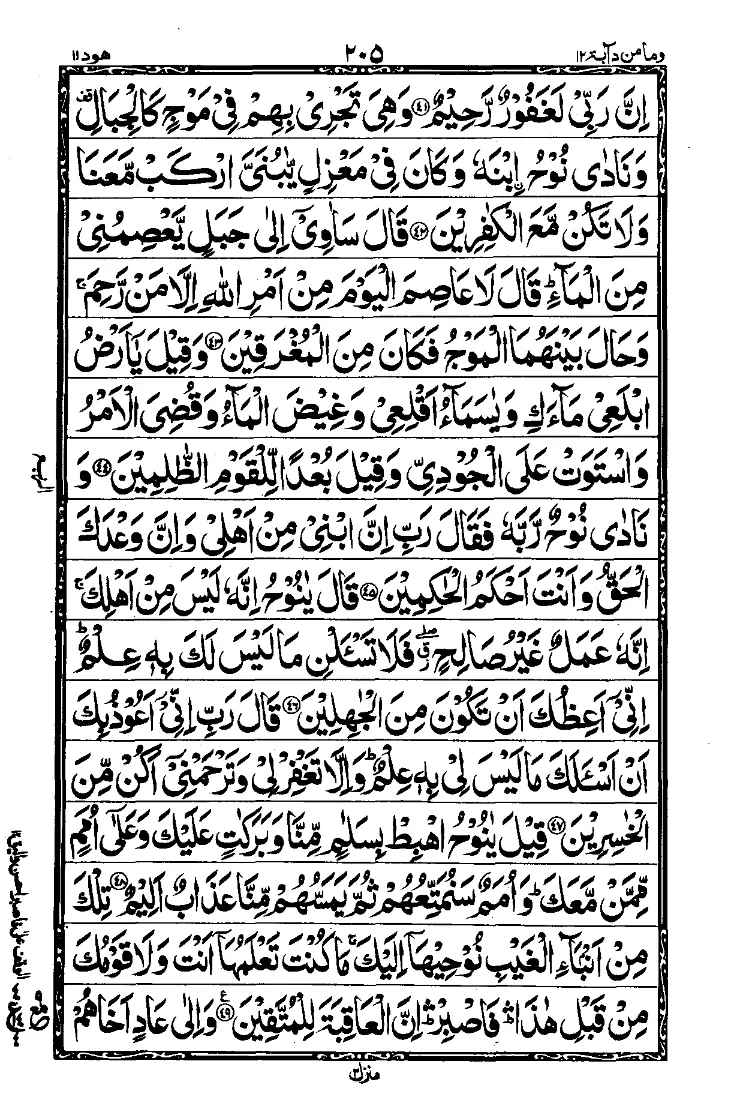 وما من دآبة ١٢
٢٠٥
هود ١١
اِنَّ رَبِّیْ لَغَفُوْرٌ رَّحِیْمٌ ﴿۴۱﴾ وَهِیَ تَجْرِیْ بِهِمْ فِیْ مَوْجٍ كَالْجِبَالِ قف
وَنَادٰی نُوْحُ اِ۟بْنَهٗ وَكَانَ فِیْ مَعْزِلٍ یّٰبُنَیَّ ارْكَبْ مَّعَنَا
وَلَا تَكُنْ مَّعَ الْكٰفِرِیْنَ ﴿۴۲﴾ قَالَ سَاٰوِیْۤ اِلٰی جَبَلٍ یَّعْصِمُنِیْ
مِنَ الْمَآءِ ؕ قَالَ لَا عَاصِمَ الْیَوْمَ مِنْ اَمْرِ اللّٰهِ اِلَّا مَنْ رَّحِمَ ۚ
وَحَالَ بَیْنَهُمَا الْمَوْجُ فَكَانَ مِنَ الْمُغْرَقِیْنَ ﴿۴۳﴾ وَقِیْلَ یٰۤاَرْضُ
ابْلَعِیْ مَآءَكِ وَیٰسَمَآءُ اَقْلِعِیْ وَغِیْضَ الْمَآءُ وَقُضِیَ الْاَمْرُ
وَاسْتَوَتْ عَلَی الْجُوْدِیِّ وَقِیْلَ بُعْدًا لِّلْقَوْمِ الظّٰلِمِیْنَ ﴿۴۴﴾ وَ
نَادٰی نُوْحٌ رَّبَّهٗ فَقَالَ رَبِّ اِنَّ ابْنِیْ مِنْ اَهْلِیْ وَاِنَّ وَعْدَكَ
الْحَقُّ وَاَنْتَ اَحْكَمُ الْحٰكِمِیْنَ ﴿۴۵﴾ قَالَ یٰنُوْحُ اِنَّهٗ لَیْسَ مِنْ اَهْلِكَ ۚ
اِنَّهٗ عَمَلٌ غَیْرُ صَالِحٍ فَلَا تَسْـَٔلْنِ مَا لَیْسَ لَكَ بِهٖ عِلْمٌ ؕ
اِنِّیْۤ اَعِظُكَ اَنْ تَكُوْنَ مِنَ الْجٰهِلِیْنَ ﴿۴۶﴾ قَالَ رَبِّ اِنِّیْۤ اَعُوْذُ بِكَ
اَنْ اَسْـَٔلَكَ مَا لَیْسَ لِیْ بِهٖ عِلْمٌ ؕ وَاِلَّا تَغْفِرْ لِیْ وَتَرْحَمْنِیْۤ اَكُنْ مِّنَ
الْخٰسِرِیْنَ ﴿۴۷﴾ قِیْلَ یٰنُوْحُ اهْبِطْ بِسَلٰمٍ مِّنَّا وَبَرَكٰتٍ عَلَیْكَ وَعَلٰۤی اُمَمٍ
مِّمَّنْ مَّعَكَ ؕ وَاُمَمٌ سَنُمَتِّعُهُمْ ثُمَّ یَمَسُّهُمْ مِّنَّا عَذَابٌ اَلِیْمٌ ﴿۴۸﴾ تِلْكَ
مِنْ اَنْۢبَآءِ الْغَیْبِ نُوْحِیْهَاۤ اِلَیْكَ ۚ مَا كُنْتَ تَعْلَمُهَاۤ اَنْتَ وَلَا قَوْمُكَ
مِنْ قَبْلِ هٰذَا ؕۛ فَاصْبِرْ ؕۛ اِنَّ الْعَاقِبَةَ لِلْمُتَّقِیْنَ ﴿۴۹﴾ ع وَاِلٰی عَادٍ اَخَاهُمْ
منزل ٣